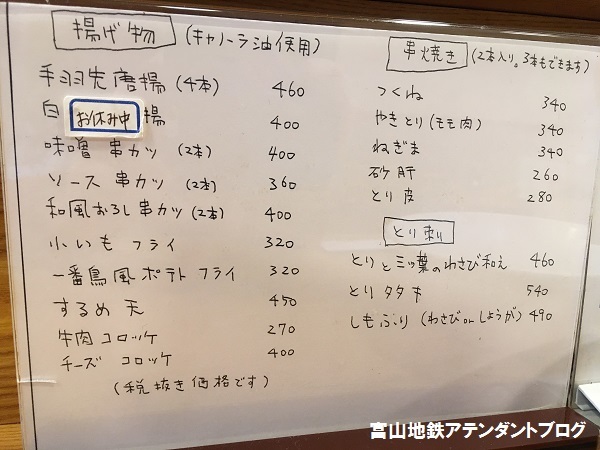 揚げ物 (キャノーラ油使用)
手羽先唐揚 (4本) 460
白 お休み中 揚 400
味噌串カツ (2本) 400
ソース串カツ (2本) 360
和風おろし串カツ (2本) 400
小いもフライ 320
一番鳥風ポテトフライ 320
するめ天 450
牛肉コロッケ 270
チーズコロッケ 400
(税抜き価格です)
串焼き (2本入り。3本もできます)
つくね 340
やきとり (モモ肉) 340
ねぎま 340
砂肝 260
とり皮 280
とり刺り
とりと三ッ葉のわさび和え 460
とりタタキ 540
しもふり (わさび or しょうが) 490
富山地鉄アテンダントブログ